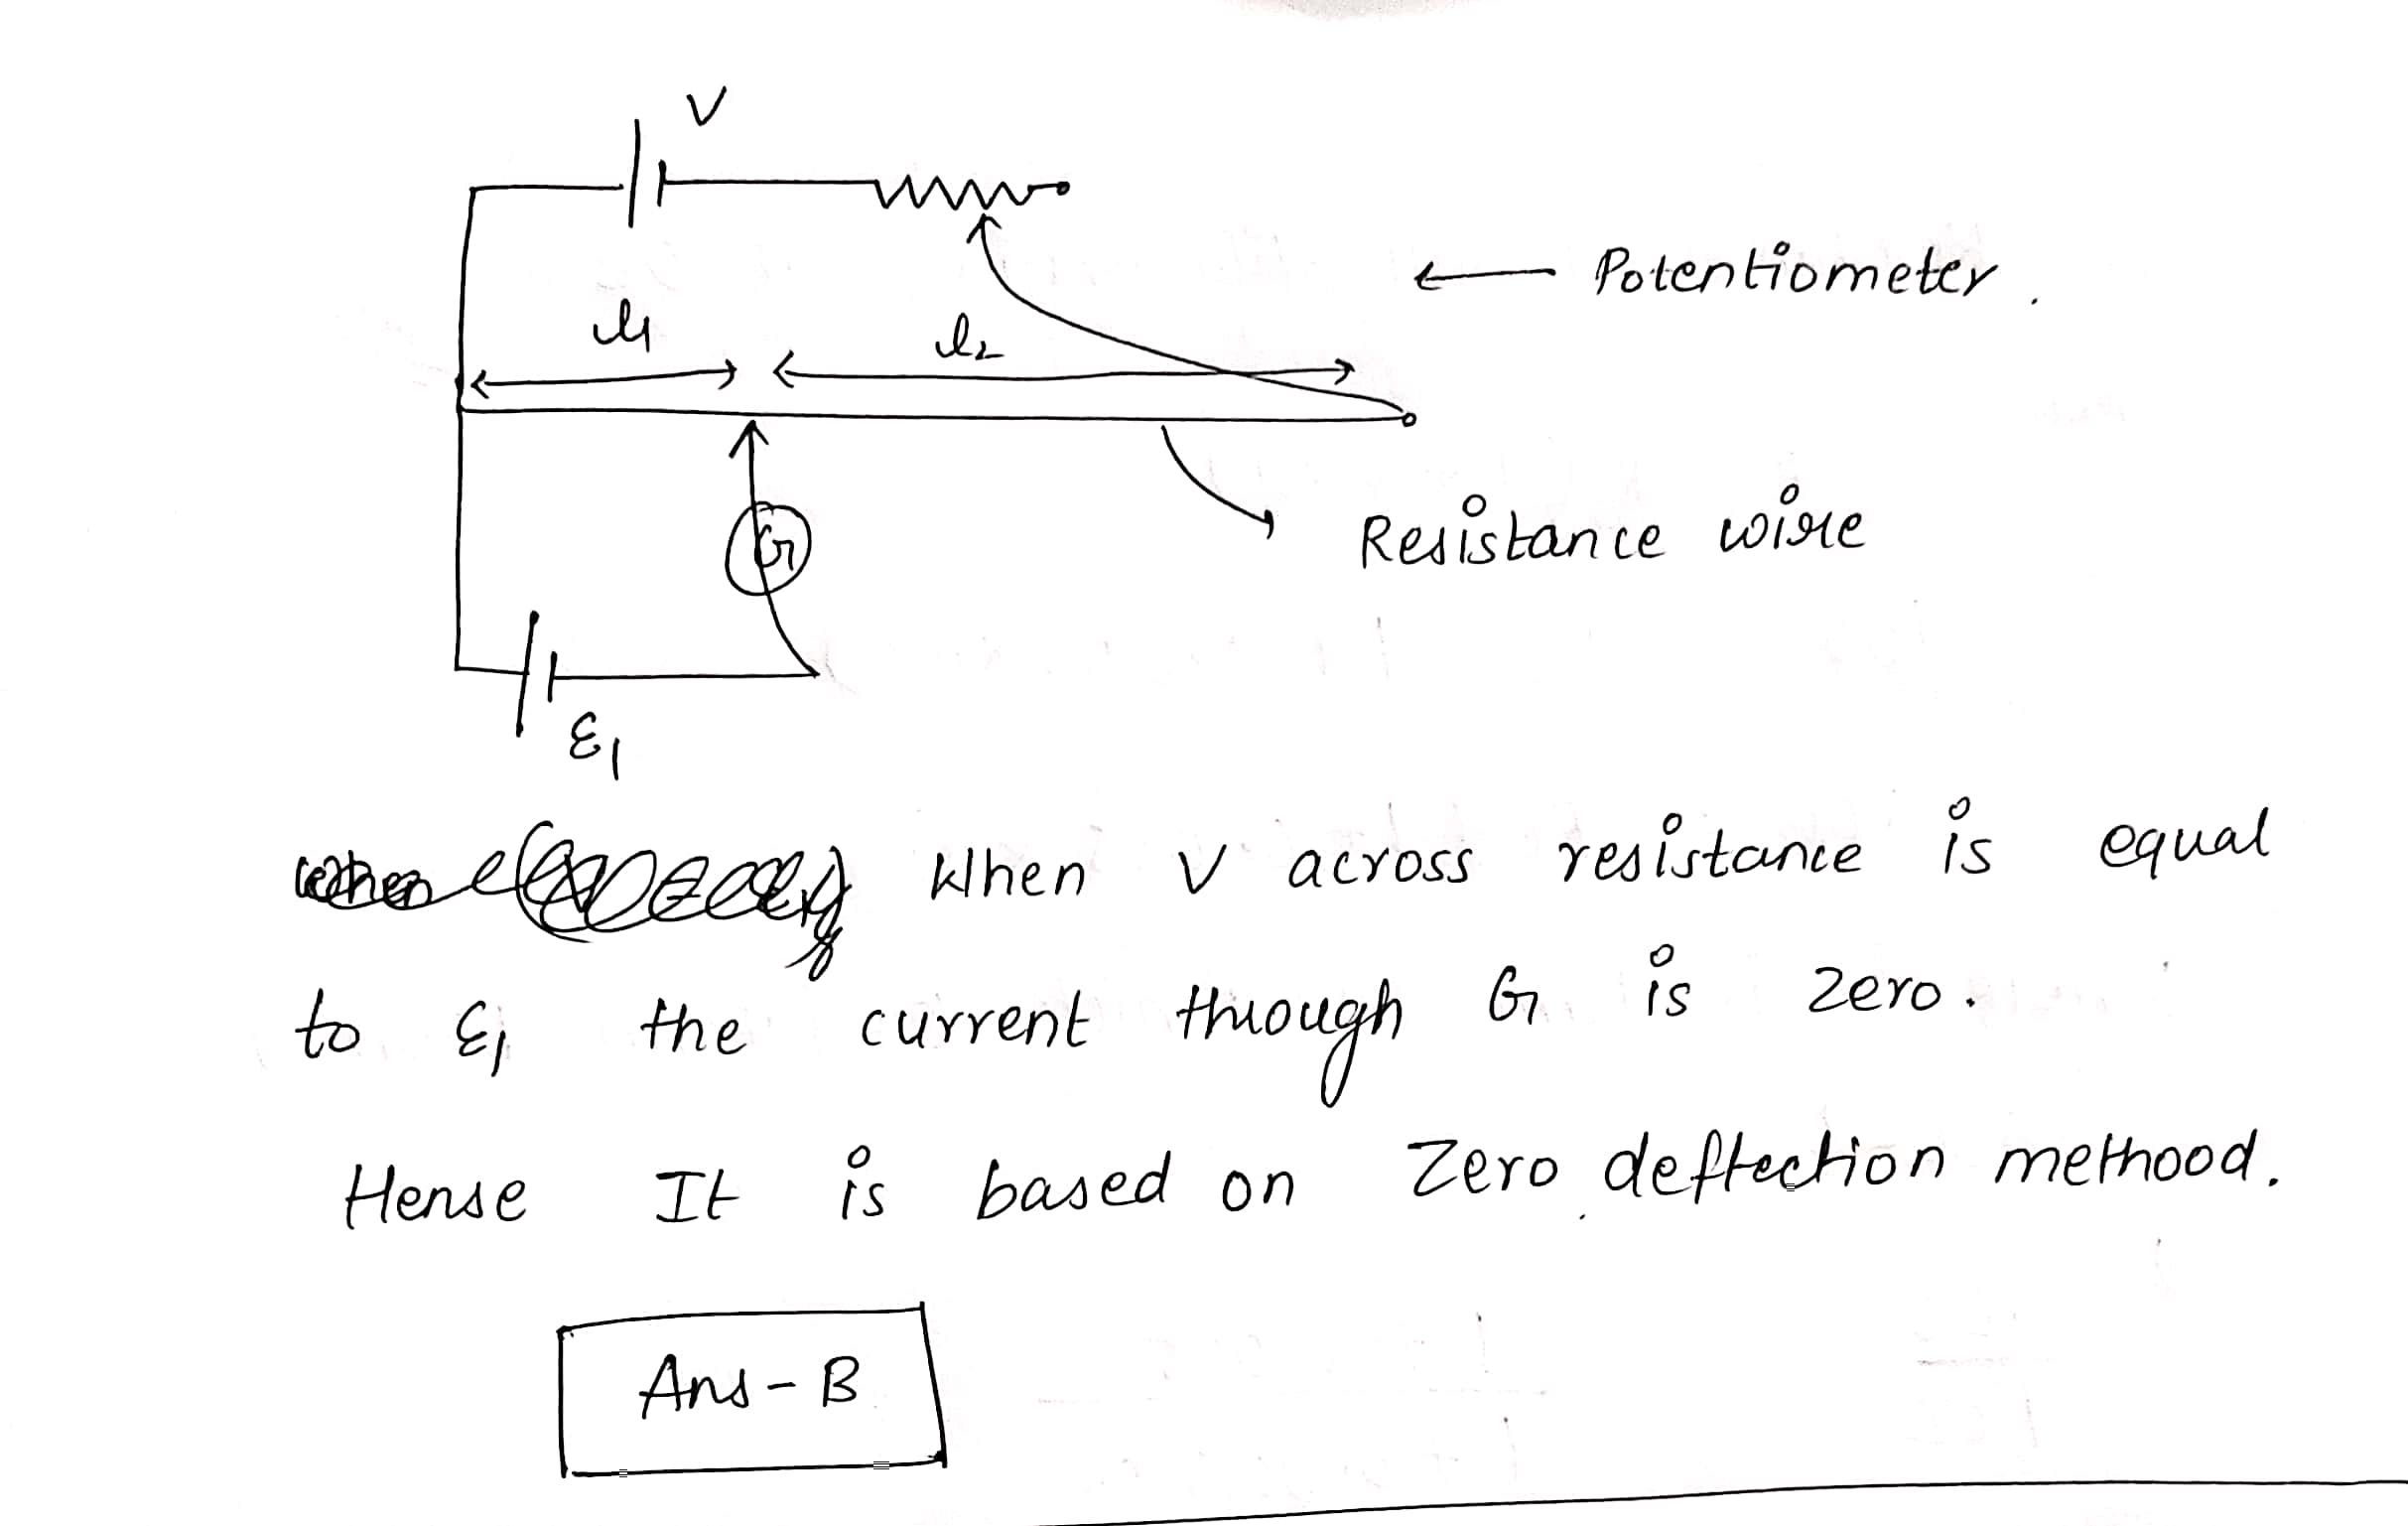 V
l1
l2
Potentiometer.
G
Resistance wire
ε1
When V across resistance is equal
to ε1 the current through G is zero.
Hense It is based on Zero deflection methood.
Ans-B